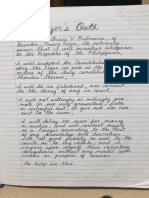 yer's Oath
of
do solemnly
swear that I will maintain allegiance
to the Republic of the Philippines,
I will support the Constitution
and obey the laws as well as the legal
orders of the duly constituted
therein;
I will do no falsehood, nor consent
to the doing of any in court;
I will not wittingly or willingly pro
mote or sue any groundless, false
or unlawful suit, or give aid nor
consent to the same.
I will delay no man for money
or malice, and will conduct myself
as a lawyer according to the best
of my knowledge and discretion,
with all good fidelity as well to the
courts as to my clients; and I impose
upon myself these voluntary
obligations without any mental reser
vation or purpose of evasion.
So help me God.